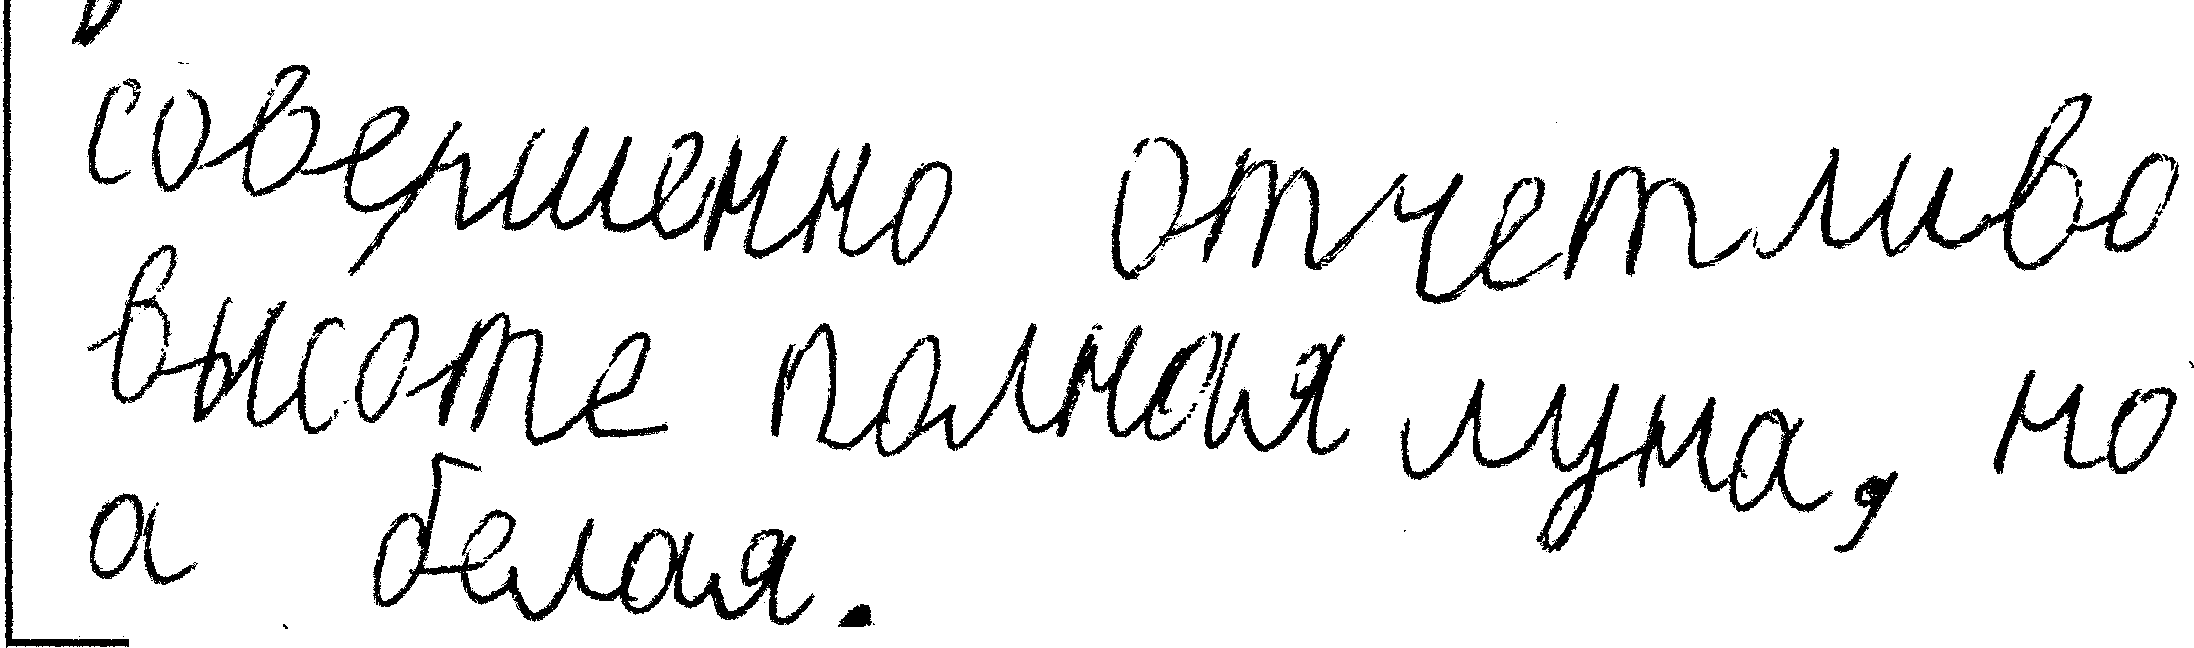 совершенно отчетливо
высоте полная луна, но
а белая.